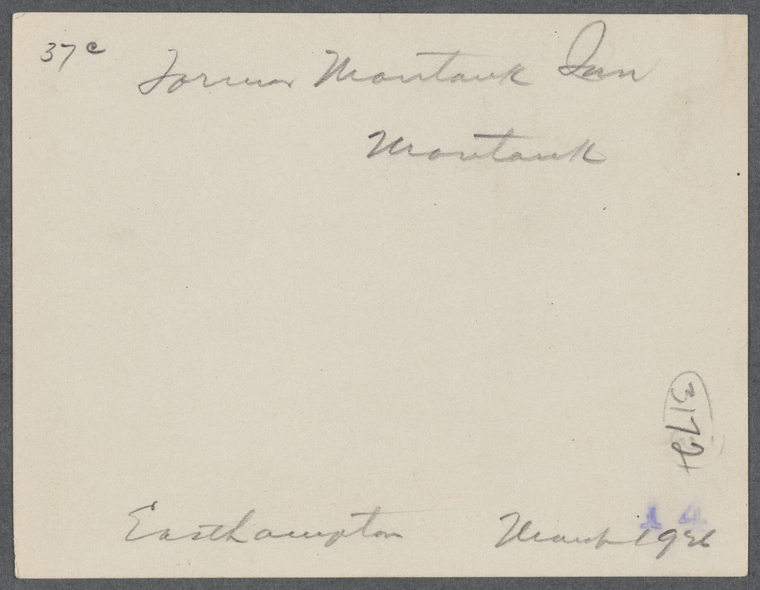 37c Former Montauk Inn
Montauk
3172
Easthampton March 1926